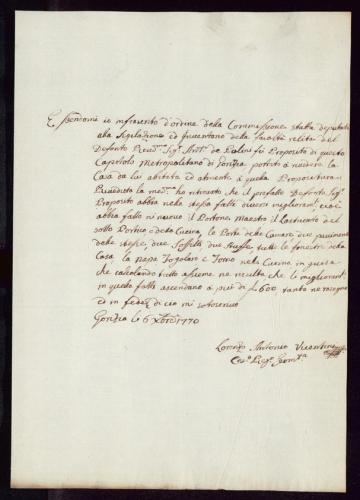 Essendomi io infrascritto d'ordine della Commissione statta deputata
alla Sigilazione ed Inventario della facoltà relita del
Defonto Rev.mo Sig.r Ant.o de fù Proposito di questo
Capitolo Metropolitano di Gorizia portato à vedere la
Casa da lui abitata ed atinente à questa Prepositura
la med.ma hò ritrovato che il prefatto Defonto Sig.r
Proposito abbia nella stessa fatti diversi miglioramenti, cioè
abbia fatto di nuovo il Portone, Maestro il Lastricato del
sotto Portico e della Cucina, le Porte delle Camare due pavimenti
delle stesse, due Soffitti due tutte le finestre della
Casa la Fogolaro e Forno nella Cucina in guisa
che calcolando tutto assieme ne risulta che li miglioramenti
in questo fatti ascendano à più di L 600 tanto ne
ed in fede di ciò mi sotoscrivo
Gorizia li 6 Xbre 1770
Lorenzo Antonio Vicentini
Ces.o Reg.o Geom.a